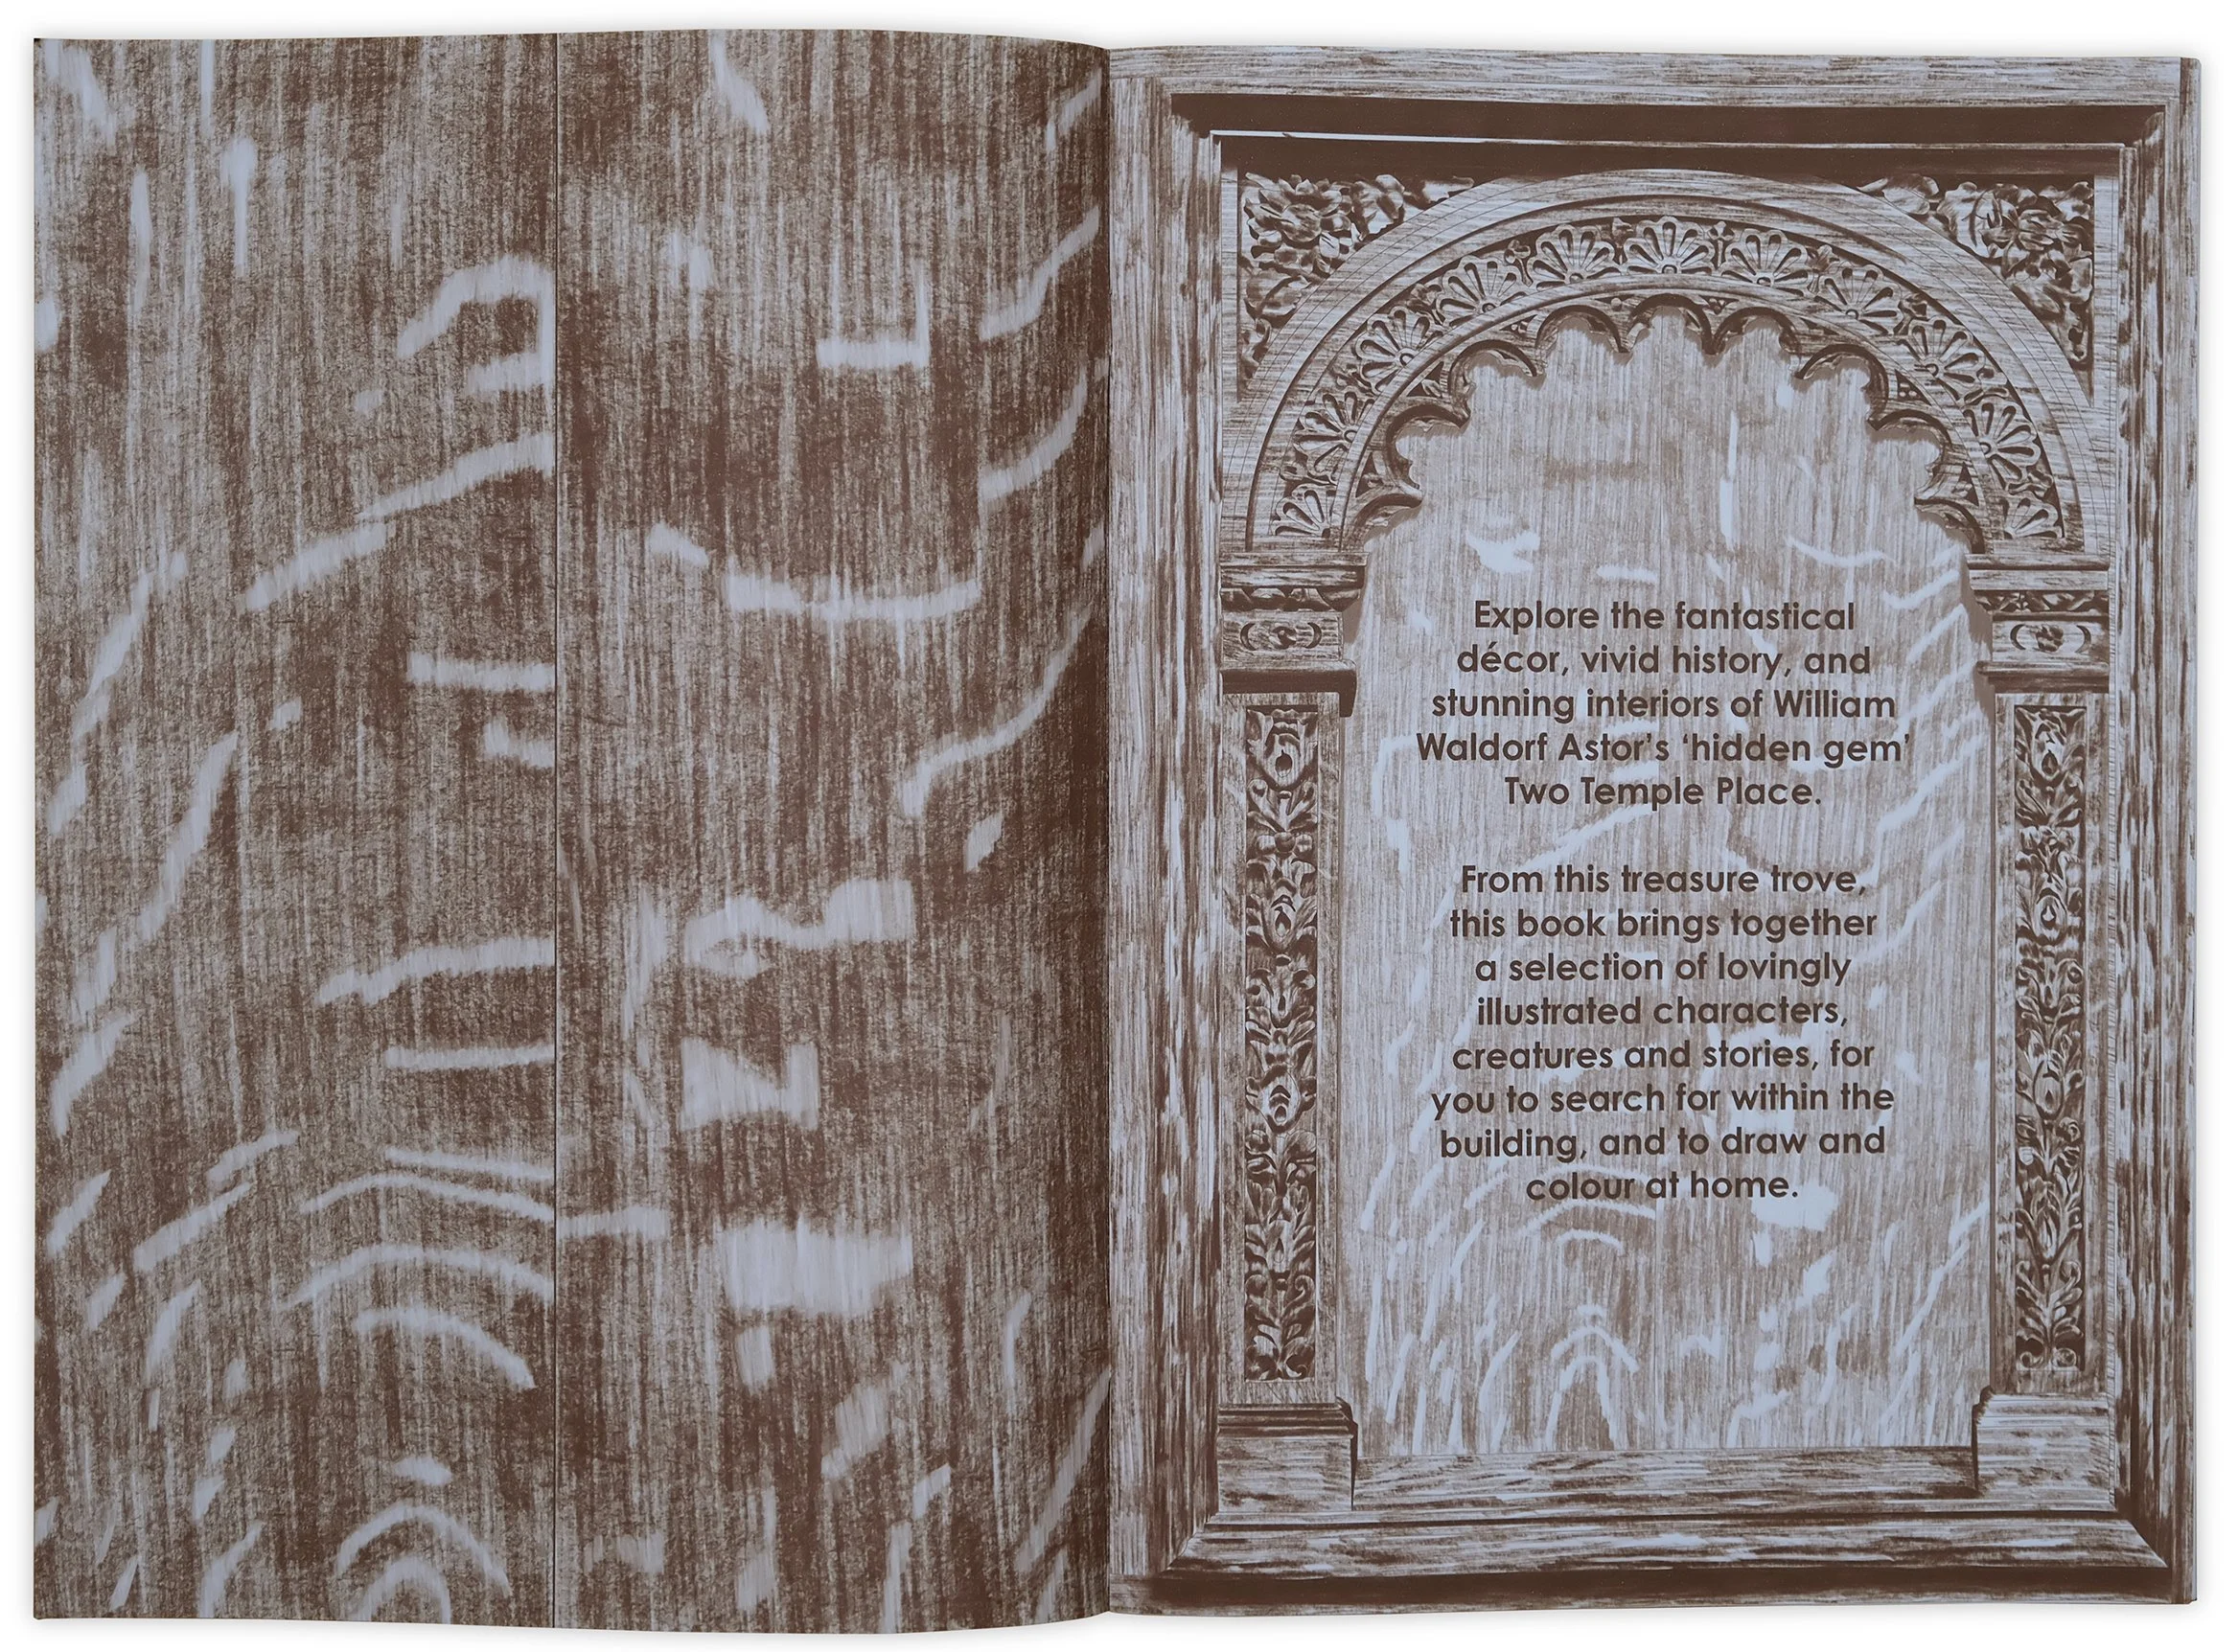 Explore the fantastical
décor, vivid history, and
stunning interiors of William
Waldorf Astor's ‘hidden gem’
Two Temple Place.
From this treasure trove,
this book brings together
a selection of lovingly
illustrated characters,
creatures and stories, for
you to search for within the
building, and to draw and
colour at home.